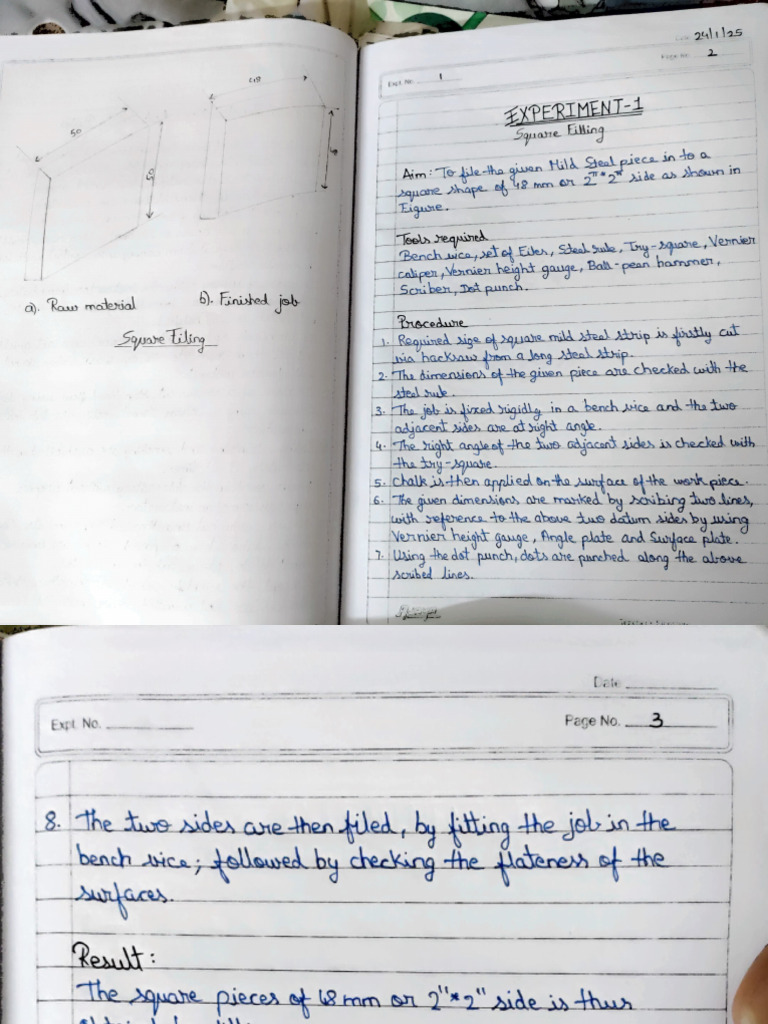 60
50
48
a). Raw material
b). Finished job
Square Filing
Date 24/1/25
Page No. 2
Expt. No. 1
EXPERIMENT-1
Square Filling
Aim: To file the given Mild Steel piece in to a
square shape of 48 mm or 2"*2" side as shown in
Figure.
Tools required
Bench vice, set of Files, Steel rule, Try-square, Vernier
caliper, Vernier height gauge, Ball-pean hammer,
Scriber, Dot punch.
Procedure
1. Required size of square mild steel strip is firstly cut
via hacksaw from a long steel strip.
2. The dimensions of the given piece are checked with the
steel rule.
3. The job is fixed rigidly in a bench vice and the two
adjacent sides are at right angle.
4. The right angle of the two adjacent sides is checked with
the try-square.
5. Chalk is then applied on the surface of the work piece.
6. The given dimensions are marked by scribing two lines,
with reference to the above two datum sides by using
Vernier height gauge, Angle plate and Surface plate.
7. Using the dot punch, dots are punched along the above
scribed lines.
Date
Expt. No.
Page No. 3
8. The two sides are then filed, by fitting the job in the
bench vice; followed by checking the flateness of the
surfaces.
Result:
The square pieces of 48 mm or 2"*2" side is thus